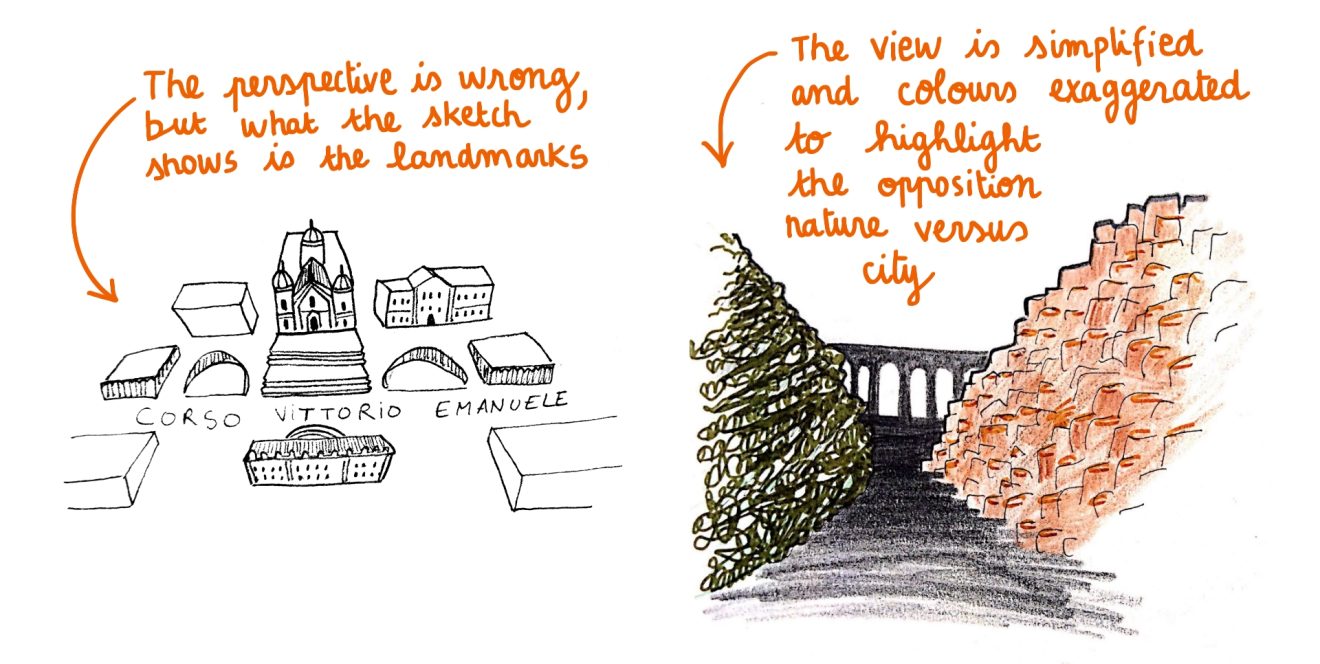 The perspective is wrong,
but what the sketch
shows is the landmarks
CORSO VITTORIO EMANUELE
The view is simplified
and colours exaggerated
to highlight
the opposition
nature versus
city